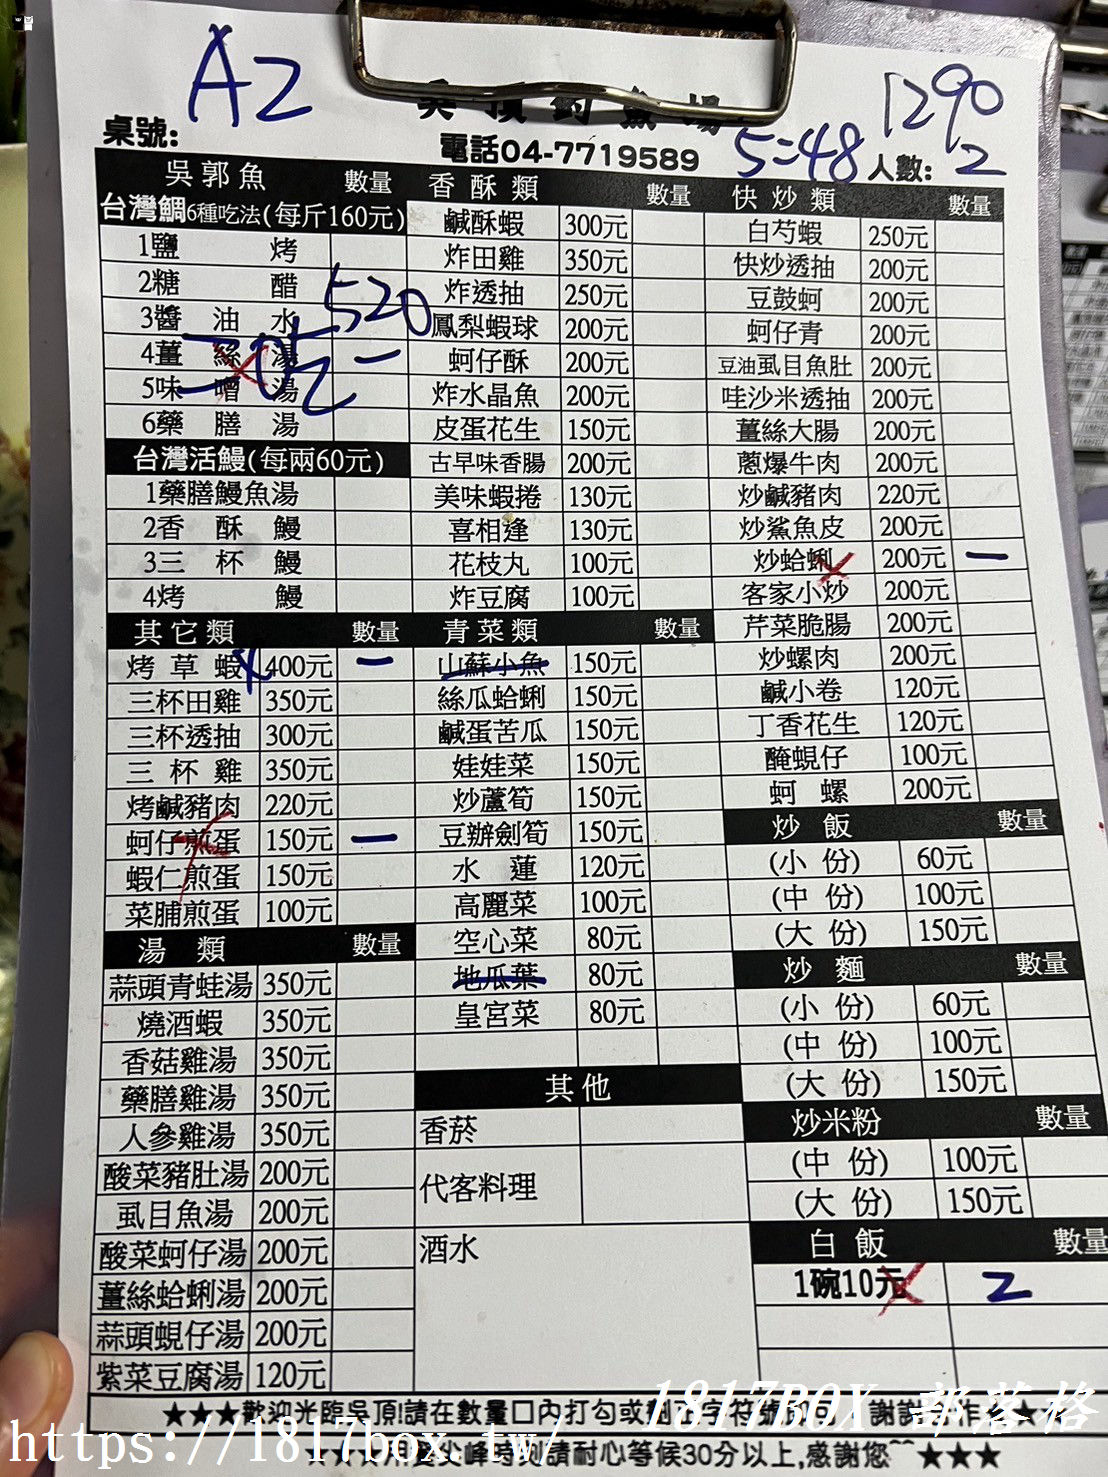 A2
1290
吳頂釣魚場
桌號:
電話04-7719589
5=48
人數: 2
吳郭魚 數量
台灣鯛6種吃法(每斤160元)
1鹽烤
2糖醋
520
3醬油水
4薑絲湯
二吃 一
5味噌湯
6藥膳湯
台灣活鰻(每兩60元)
1藥膳鰻魚湯
2香酥鰻
3三杯鰻
4烤鰻
其它類 數量
烤草蝦 400元 一
三杯田雞 350元
三杯透抽 300元
三杯雞 350元
烤鹹豬肉 220元
蚵仔煎蛋 150元 一
蝦仁煎蛋 150元
菜脯煎蛋 100元
湯類 數量
蒜頭青蛙湯 350元
燒酒蝦 350元
香菇雞湯 350元
藥膳雞湯 350元
人參雞湯 350元
酸菜豬肚湯 200元
虱目魚湯 200元
酸菜蚵仔湯 200元
薑絲蛤蜊湯 200元
蒜頭蜆仔湯 200元
紫菜豆腐湯 120元
香酥類 數量
鹹酥蝦 300元
炸田雞 350元
炸透抽 250元
鳳梨蝦球 200元
蚵仔酥 200元
炸水晶魚 200元
皮蛋花生 150元
古早味香腸 200元
美味蝦捲 130元
喜相逢 130元
花枝丸 100元
炸豆腐 100元
青菜類 數量
山蘇小魚 150元
絲瓜蛤蜊 150元
鹹蛋苦瓜 150元
娃娃菜 150元
炒蘆筍 150元
豆瓣劍筍 150元
水蓮 120元
高麗菜 100元
空心菜 80元
地瓜葉 80元
皇宮菜 80元
其他
香菸
代客料理
酒水
快炒類 數量
白芍蝦 250元
快炒透抽 200元
豆鼓蚵 200元
蚵仔青 200元
豆油虱目魚肚 200元
哇沙米透抽 200元
薑絲大腸 200元
蔥爆牛肉 200元
炒鹹豬肉 220元
炒鯊魚皮 200元
炒蛤蜊 200元 一
客家小炒 200元
芹菜脆腸 200元
炒螺肉 200元
鹹小卷 120元
丁香花生 120元
醃蜆仔 100元
蚵螺 200元
炒飯 數量
(小份) 60元
(中份) 100元
(大份) 150元
炒麵 數量
(小份) 60元
(中份) 100元
(大份) 150元
炒米粉 數量
(中份) 100元
(大份) 150元
白飯 數量
1碗10元 2
★★★歡迎光臨吳頂!請在數量口內打勾或劃正字符號即可 謝謝合作★★★
★★★用餐尖峰時刻請耐心等候30分以上,感謝您^^★★★
1817BOX 部落格
https://1817box.tw/